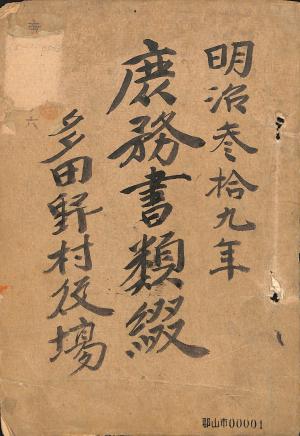 明治叁拾九年
庶務書類綴
多田野村役場
郡山市00001